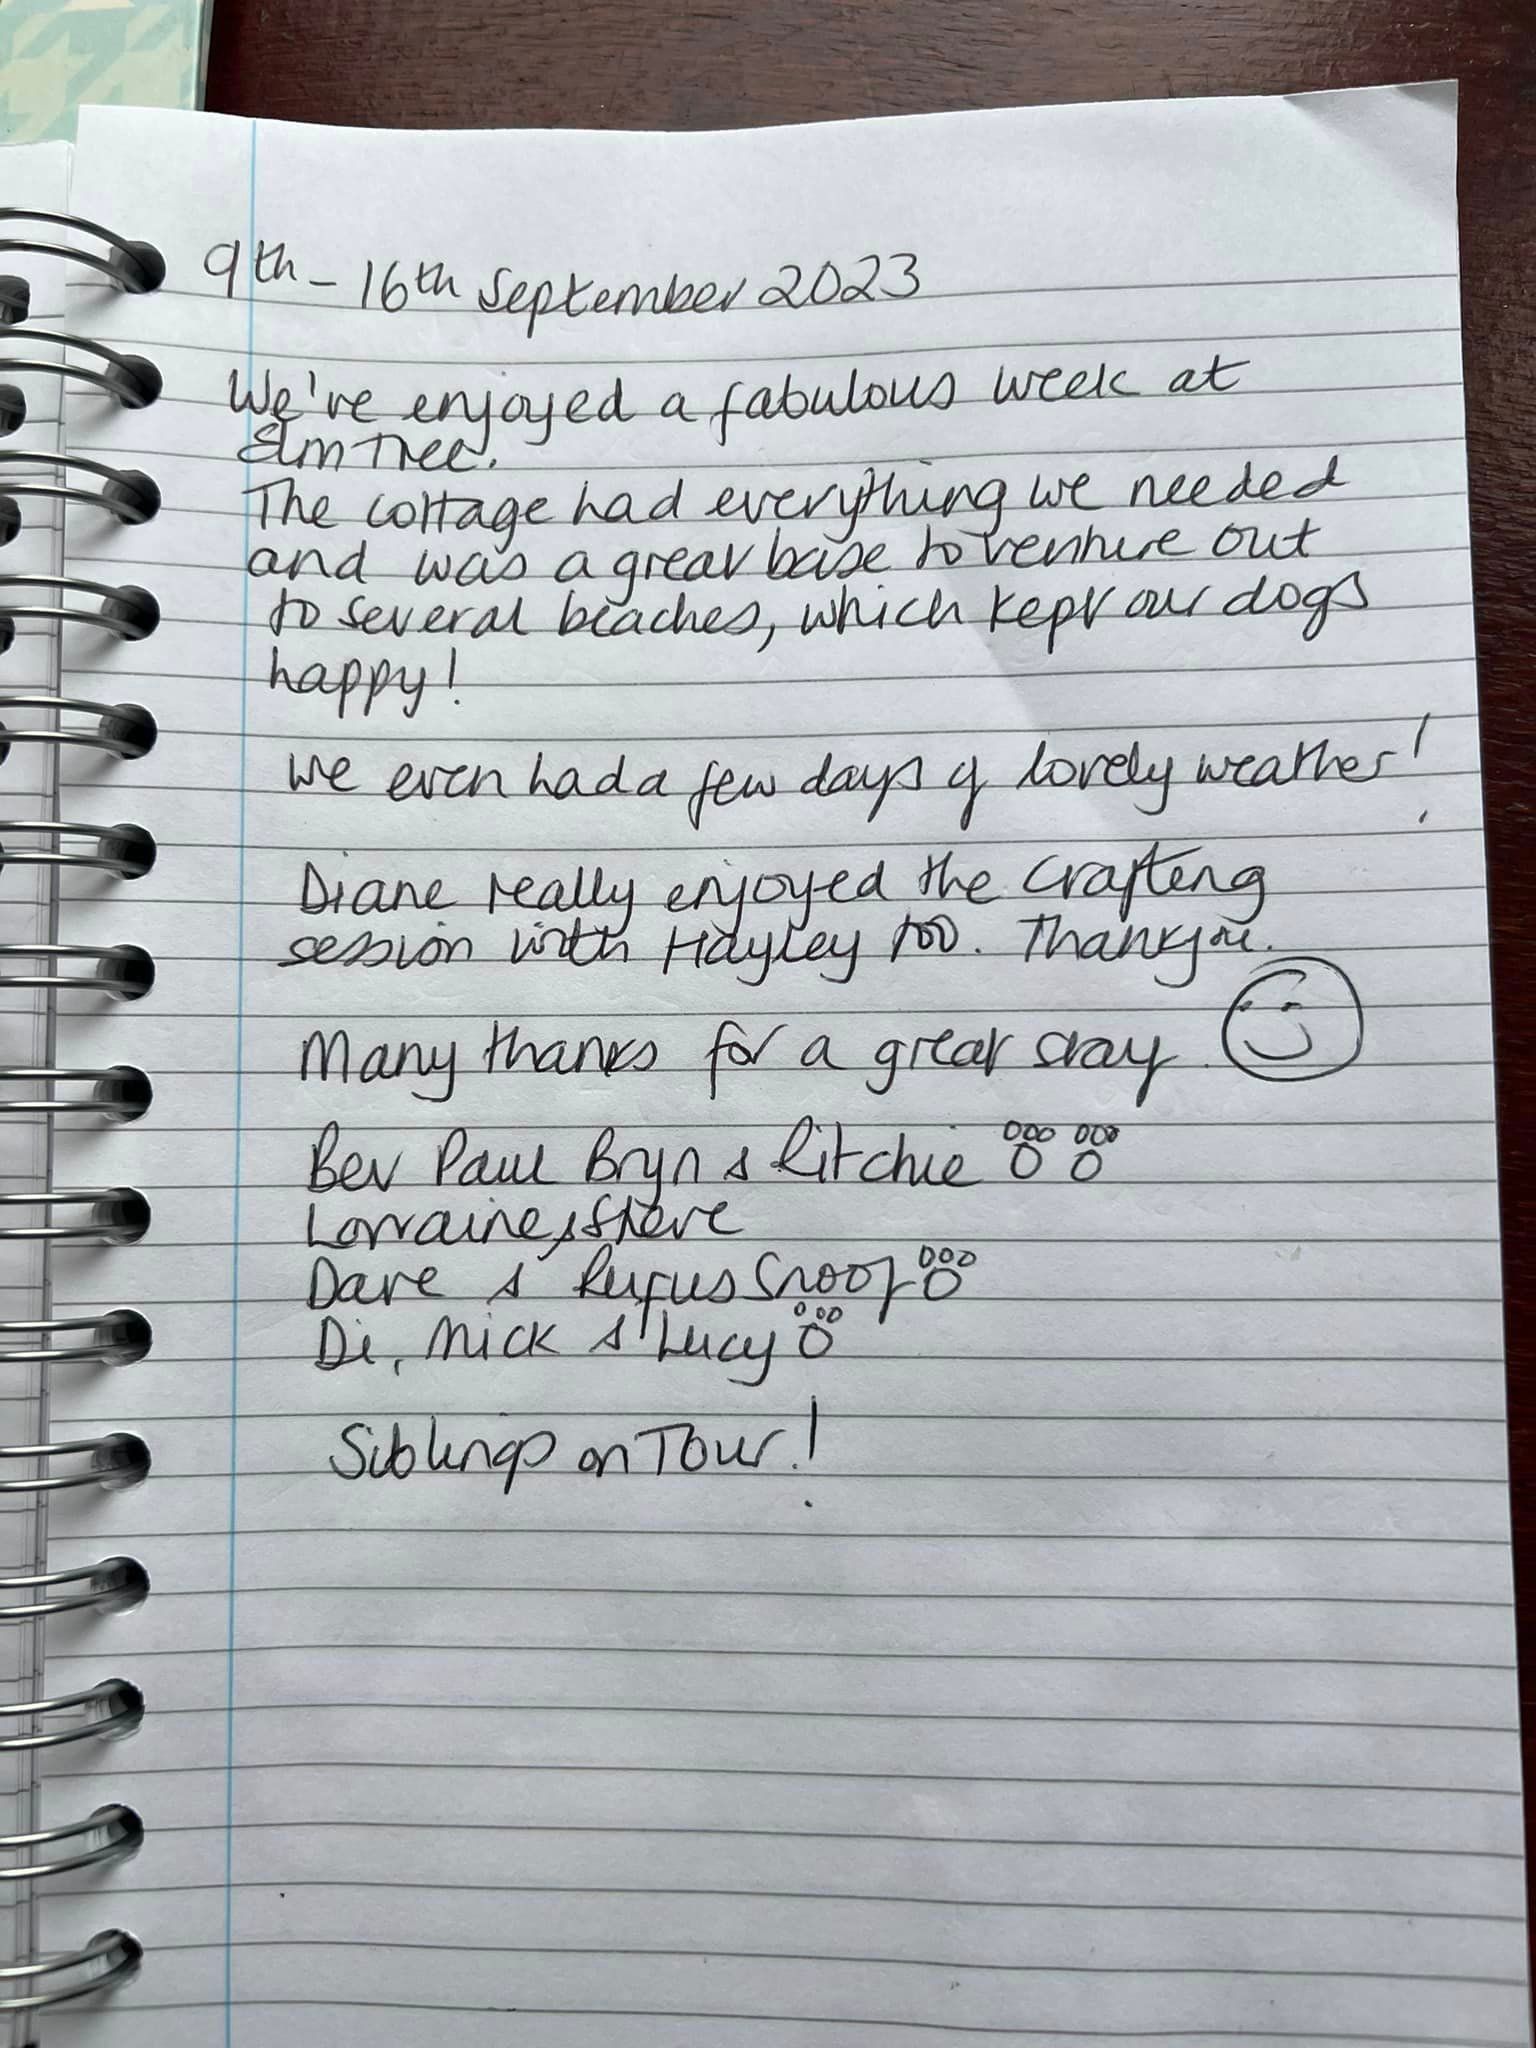 9th - 16th September 2023
We've enjoyed a fabulous week at
Elm Tree.
The cottage had everything we needed
and was a great base to venture out
to several beaches, which kept our dogs
happy!
We even had a few days of lovely weather!
Diane really enjoyed the Crafting
session with Hayley too. Thankyou.
Many thanks for a great stay
Bev Paul Bryn & Ritchie
Lorraine & Steve
Dave & Rufus Snoof
Di, Mick & Lucy
Siblings on Tour!